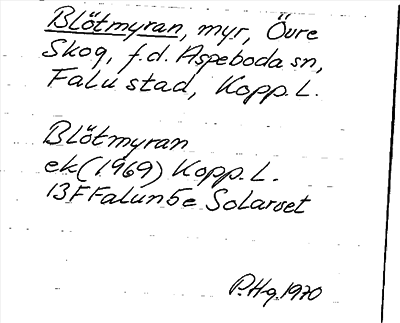 Blötmyran, myr, Övre
Skog, f.d. Aspeboda sn,
Falu stad, Kopp. L.
Blötmyran
ek (1969) Kopp. L.
13F Falun 5e Solarvet
P.Hg. 1970